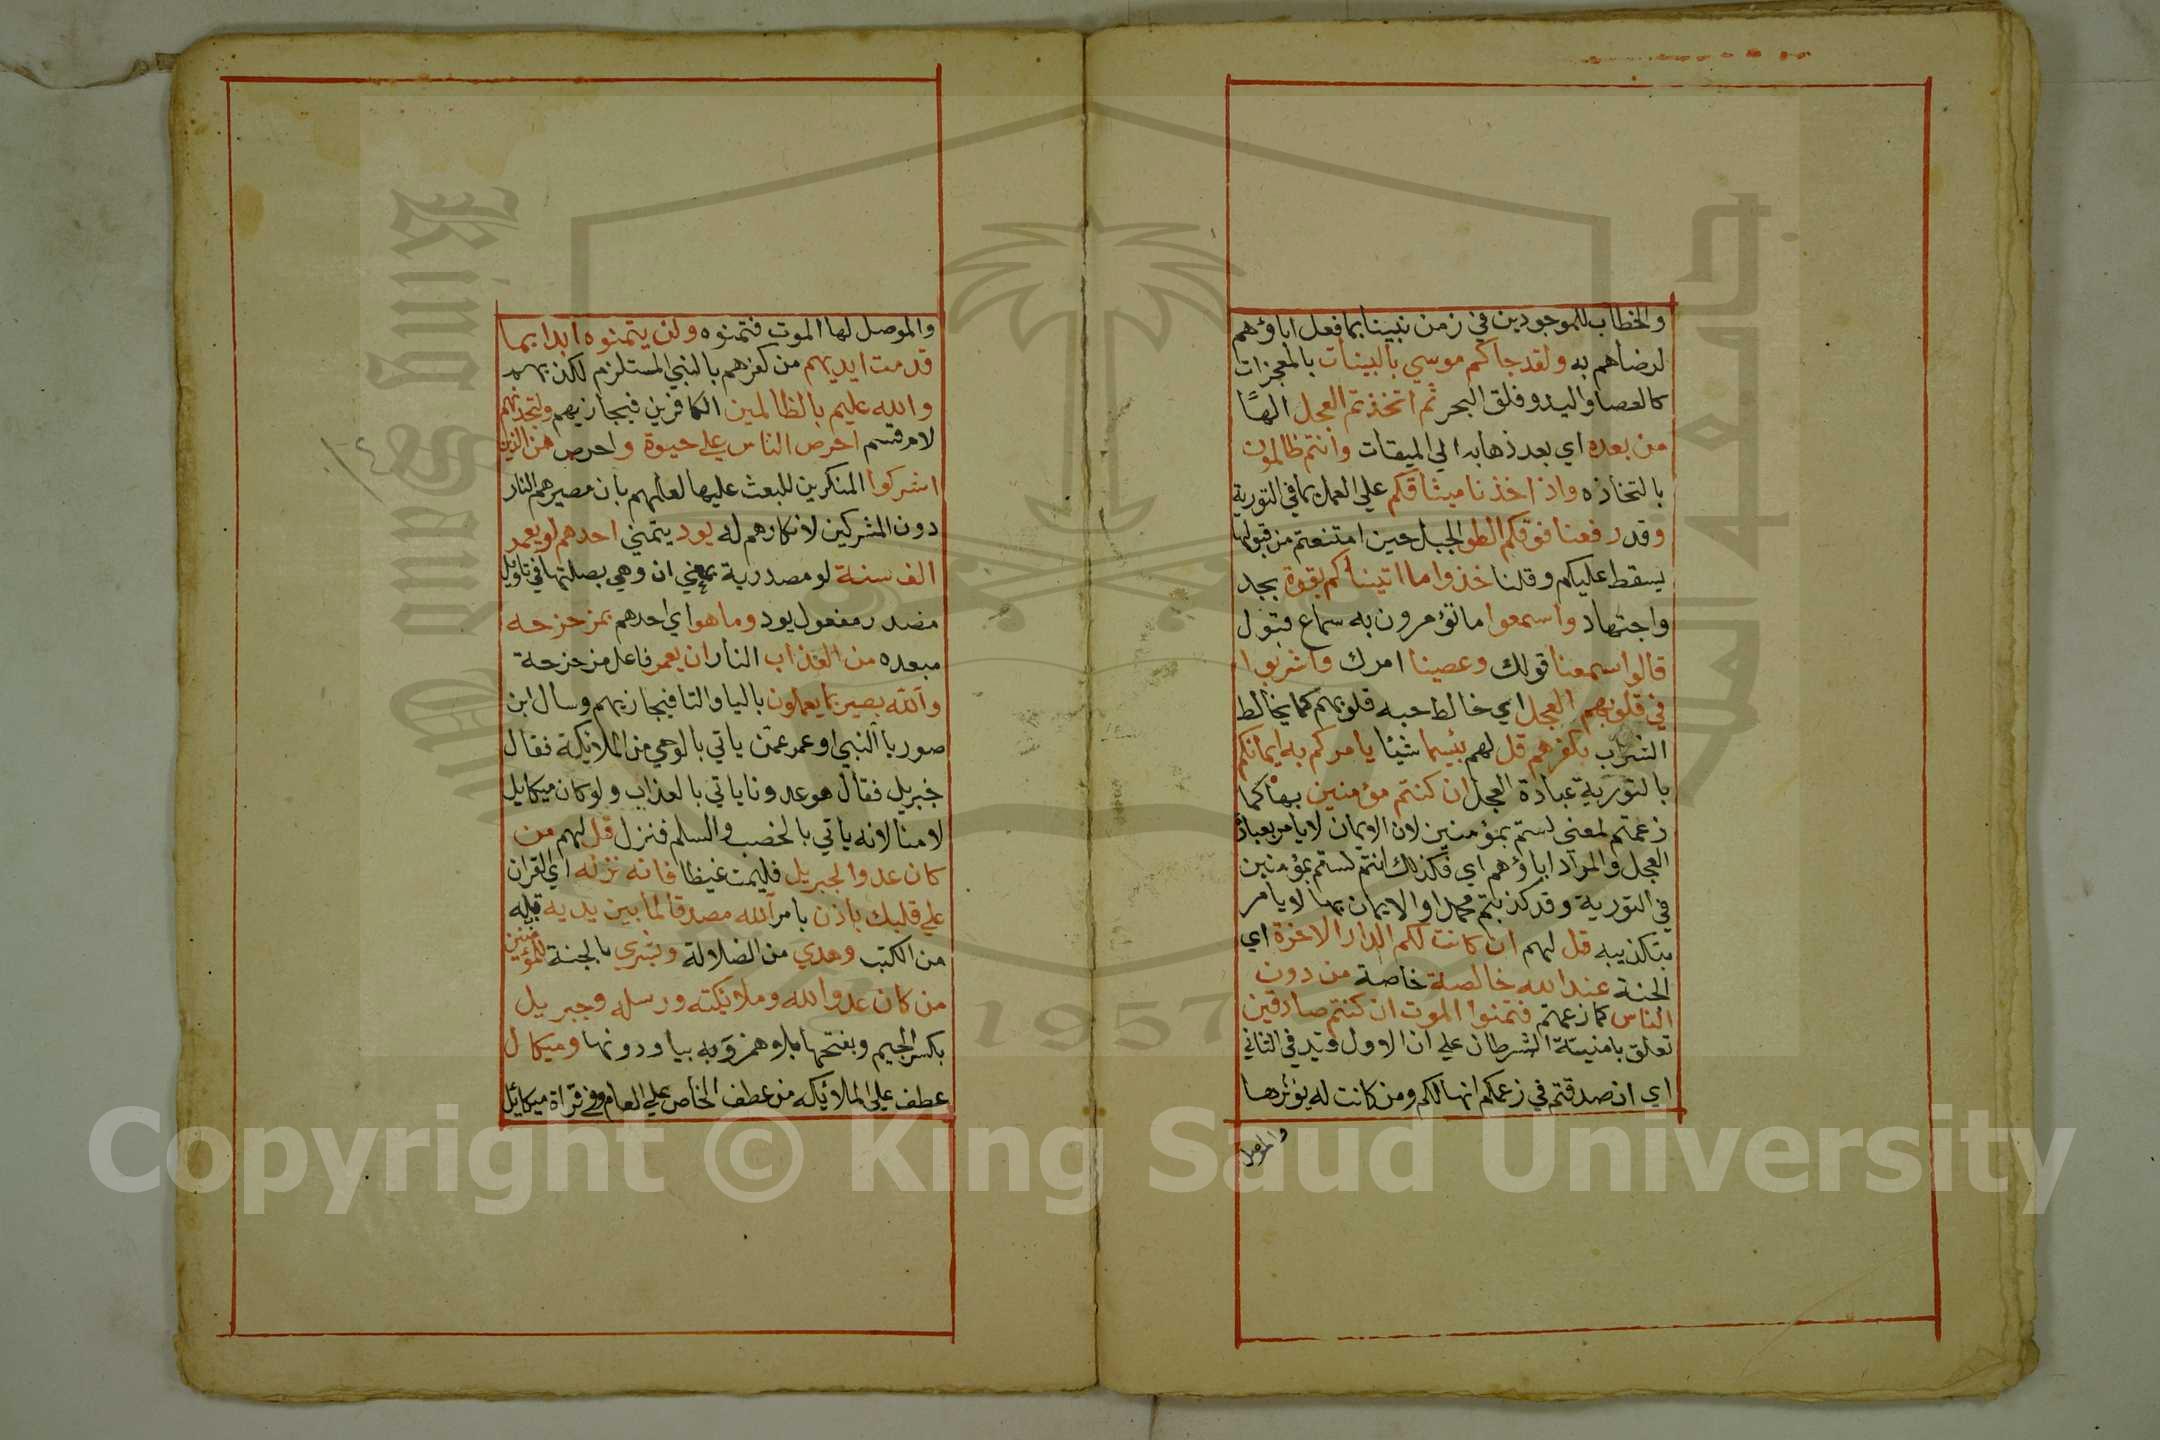 والخطاب للموجودين في زمن نبينا بما فعل اباؤهم
لرضاهم به ولقد جاكم موسي بالبينات بالمعجزات
كالعصا واليد وفلق البحر ثم اتخذتم العجل الهًا
من بعده اي بعد ذهابه الي الميقات وانتم ظالمون
باتخاذه واذ اخذنا ميثاقكم علي العمل بما في التورية
وقد رفعنا فوقكم الطور الجبل حين امتنعتم من قبولها
يسقط عليكم وقلنا خذوا ما اتيناكم بقوة بجد
واجتهاد واسمعوا ما تؤمرون به سماع قبول
قالوا سمعنا قولك وعصينا امرك واشربوا
في قلوبهم العجل اي خالط حبه قلوبهم كما يخالط
الشراب بكفرهم قل لهم بئسما شيئا يامركم به ايمانكم
بالتورية عبادة العجل ان كنتم مؤمنين بها كما
زعمتم لمعني لستم بمؤمنين لان الايمان لا يامر بعبادة
العجل والمراد اباؤهم اي فكذلك انتم لستم بمؤمنين
في التورية وقد كذبتم محمدا والايمان بها لا يامر
بتكذيبه قل لهم ان كانت لكم الدار الاخرة اي
الجنة عند الله خالصة خاصة من دون
الناس كما زعمتم فتمنوا الموت ان كنتم صادقين
تعلق بامنيتة الشرطان علي ان الاول قيد في الثاني
اي ان صدقتم في زعمكم انها لكم ومن كانت له يؤثرها
والموصل
والموصل لها الموت فتمنوه ولن يتمنوه ابدا بما
قدمت ايديهم من كفرهم بالنبي المستلزم لكذبهم
والله عليم بالظالمين الكافرين فيجازيهم ولتجدنهم
لام قسم احرص الناس علي حيوة واحرص من الذين
اشركوا المنكرين للبعث عليها لعلمهم بان مصيرهم النار
دون المشركين لانكارهم له يود يتمني احدهم لو يعمر
الف سنة لو مصدرية بمعني ان وهي بصلتها في تاويل
مصدر مفعول يود وما هو اي احدهم بمزحزحه
مبعده من العذاب النار ان يعمر فاعل مزحزحة
والله بصير بما يعملون باليا والتا فيجازيهم وسال ابن
صوريا النبي او عمر عمن ياتي بالوحي من الملائكة فقال
جبريل فقال هو عدونا ياتي بالعذاب ولو كان ميكايل
لامنا لانه ياتي بالخصب والسلم فنزل قل لهم من
كان عدوا لجبريل فليمت غيظا فانه نزله اي القران
علي قلبك باذن بامر الله مصدقا لما بين يديه قبله
من الكتب وهدي من الضلالة وبشري بالجنة للمؤمنين
من كان عدوا لله وملائكته ورسله وجبريل
بكسر الجيم وفتحها بلا وهمز وبه بيا ودونها وميكال
عطف علي الملائكه من عطف الخاص علي العام وفي قراة ميكائيل
King Saud University
1957
Copyright © King Saud University